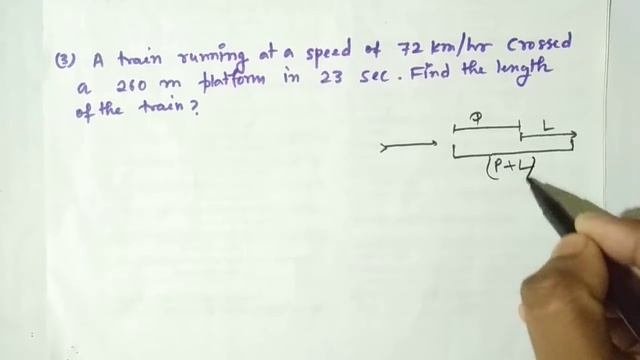 (3) A train running at a speed of 72 km/hr crossed
a 260 m platform in 23 sec. Find the length
of the train?
P L
(P+L)